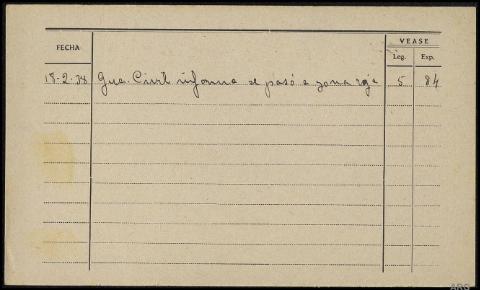 FECHA
VEASE
Leg. Exp.
18-2-38 Gua. Civil informa se pasó a zona roja 5 84